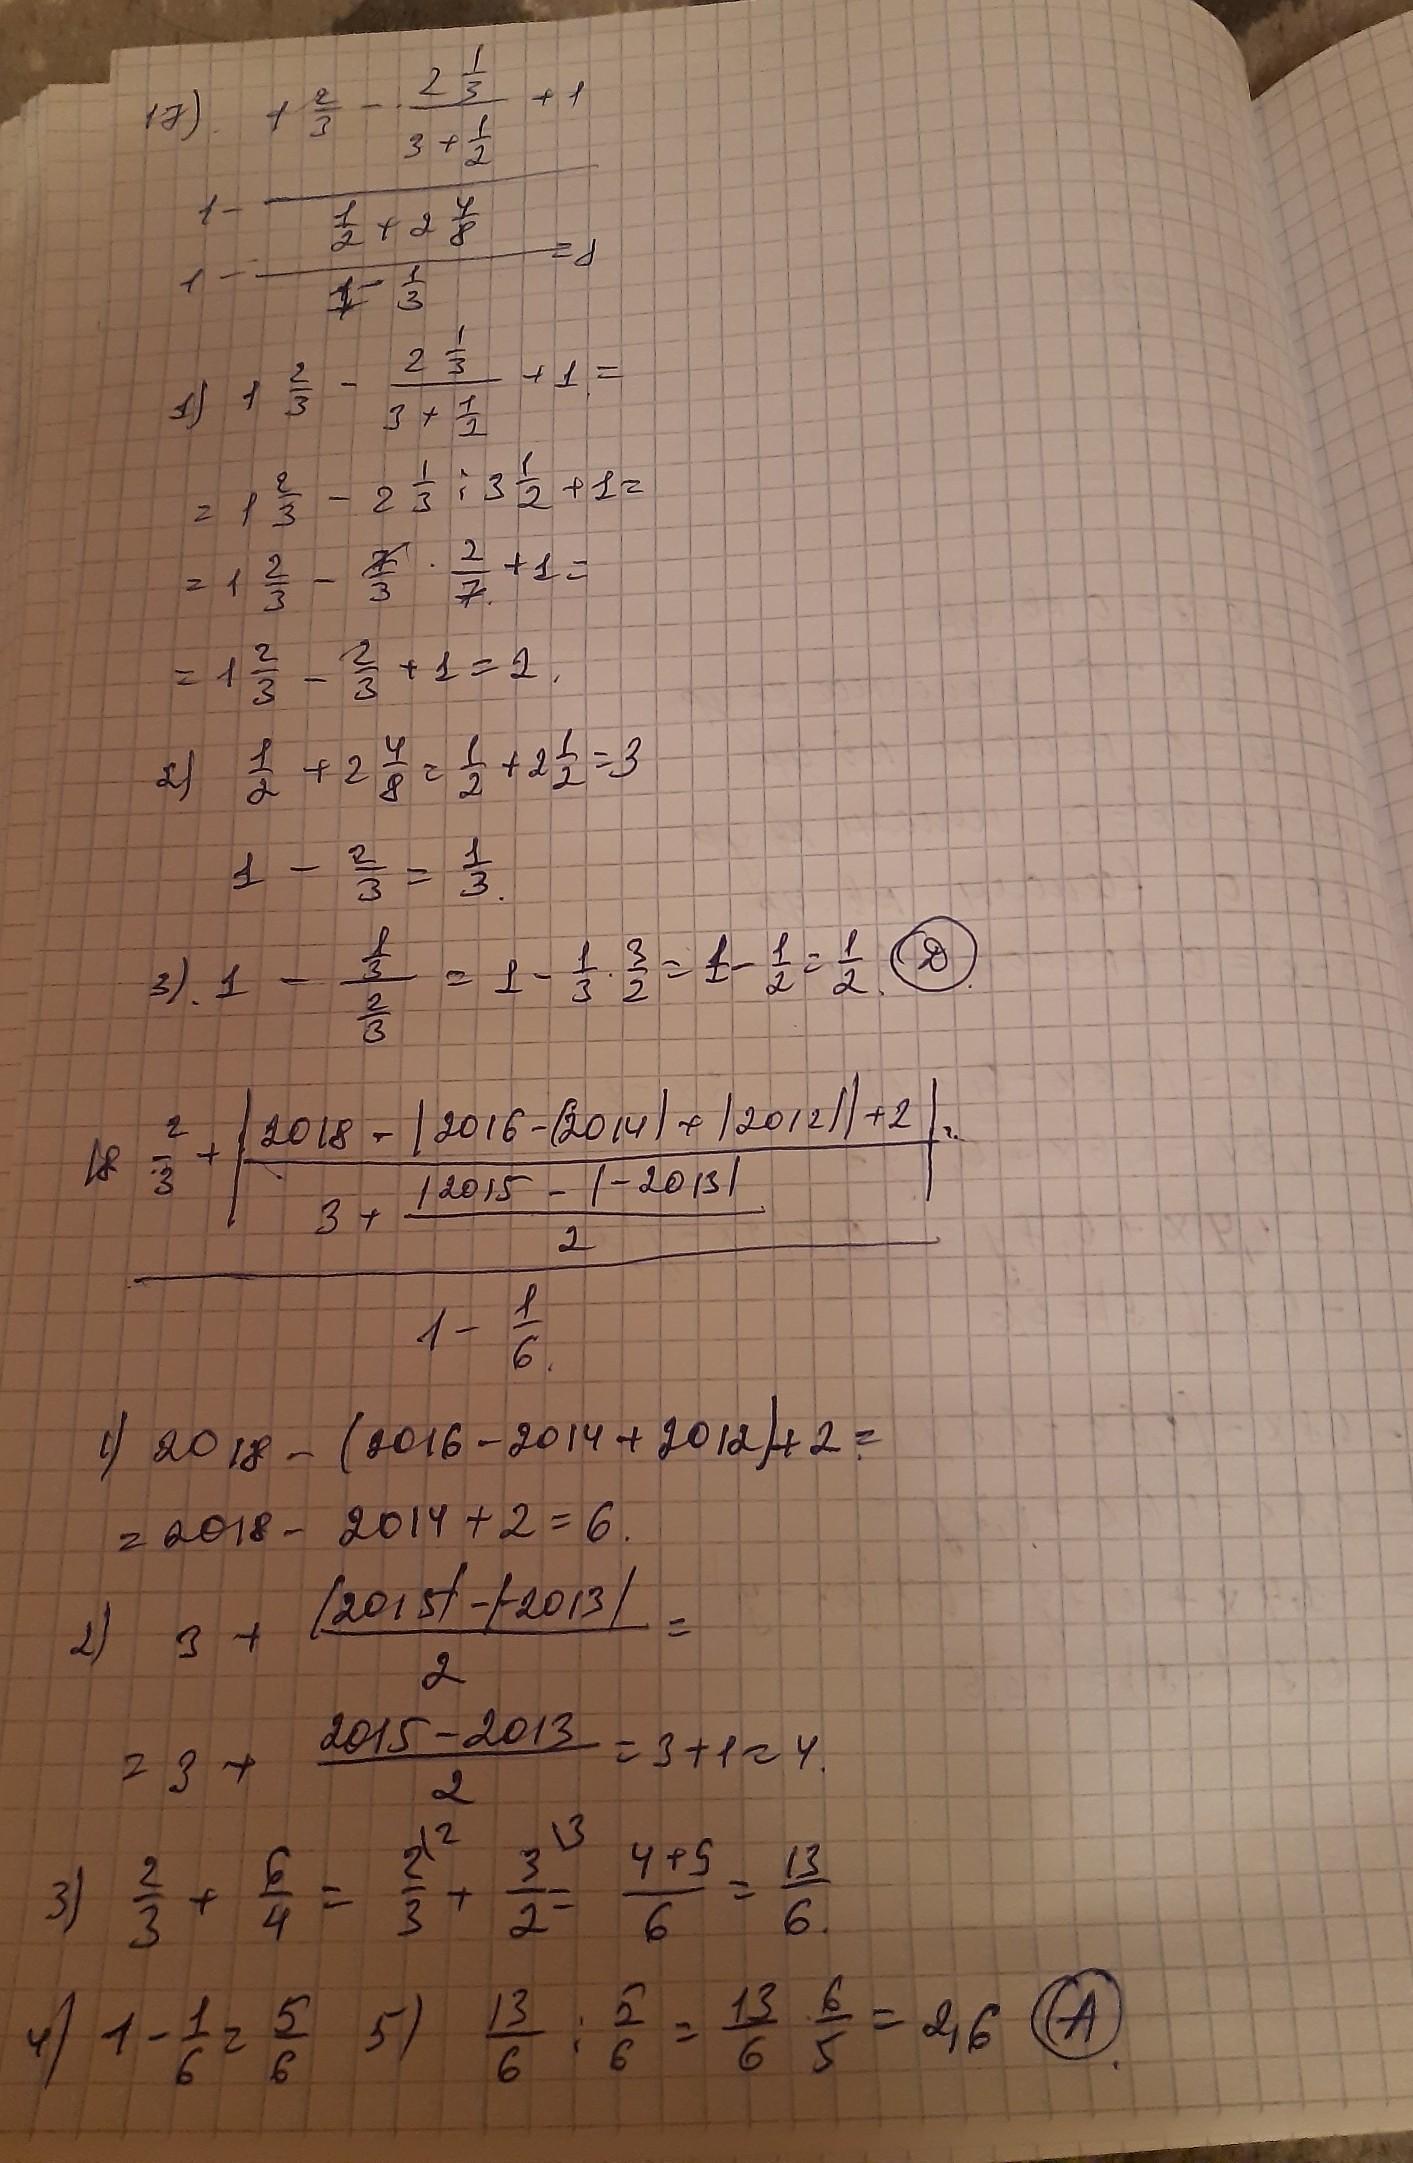 17). 1 2/3 - (2 1/3)/(3 + 1/2) + 1
1 - ———
1/2 + 2 4/8
1 - ——— = 1
1 - 1/3
1) 1 2/3 - (2 1/3)/(3 + 1/2) + 1 =
= 1 2/3 - 2 1/3 : 3 1/2 + 1 =
= 1 2/3 - 7/3 · 2/7 + 1 =
= 1 2/3 - 2/3 + 1 = 2.
2) 1/2 + 2 4/8 = 1/2 + 2 1/2 = 3
1 - 2/3 = 1/3.
3). 1 - (1/3)/(2/3) = 1 - 1/3 · 3/2 = 1 - 1/2 = 1/2. D.
18 2/3 + |2018 - |2016 - |2014| + |2012|| + 2| =
3 + (|2015 - |-2013|)/2
1 - 1/6.
1) 2018 - (2016 - 2014 + 2012) + 2 =
= 2018 - 2014 + 2 = 6.
2) 3 + (|2015| - |-2013|)/2 =
= 3 + (2015 - 2013)/2 = 3 + 1 = 4.
3) 2/3 + 6/4 = 2/3\2 + 3/2\3 = (4 + 9)/6 = 13/6.
4) 1 - 1/6 = 5/6 5) 13/6 : 5/6 = 13/6 · 6/5 = 2,6 A.